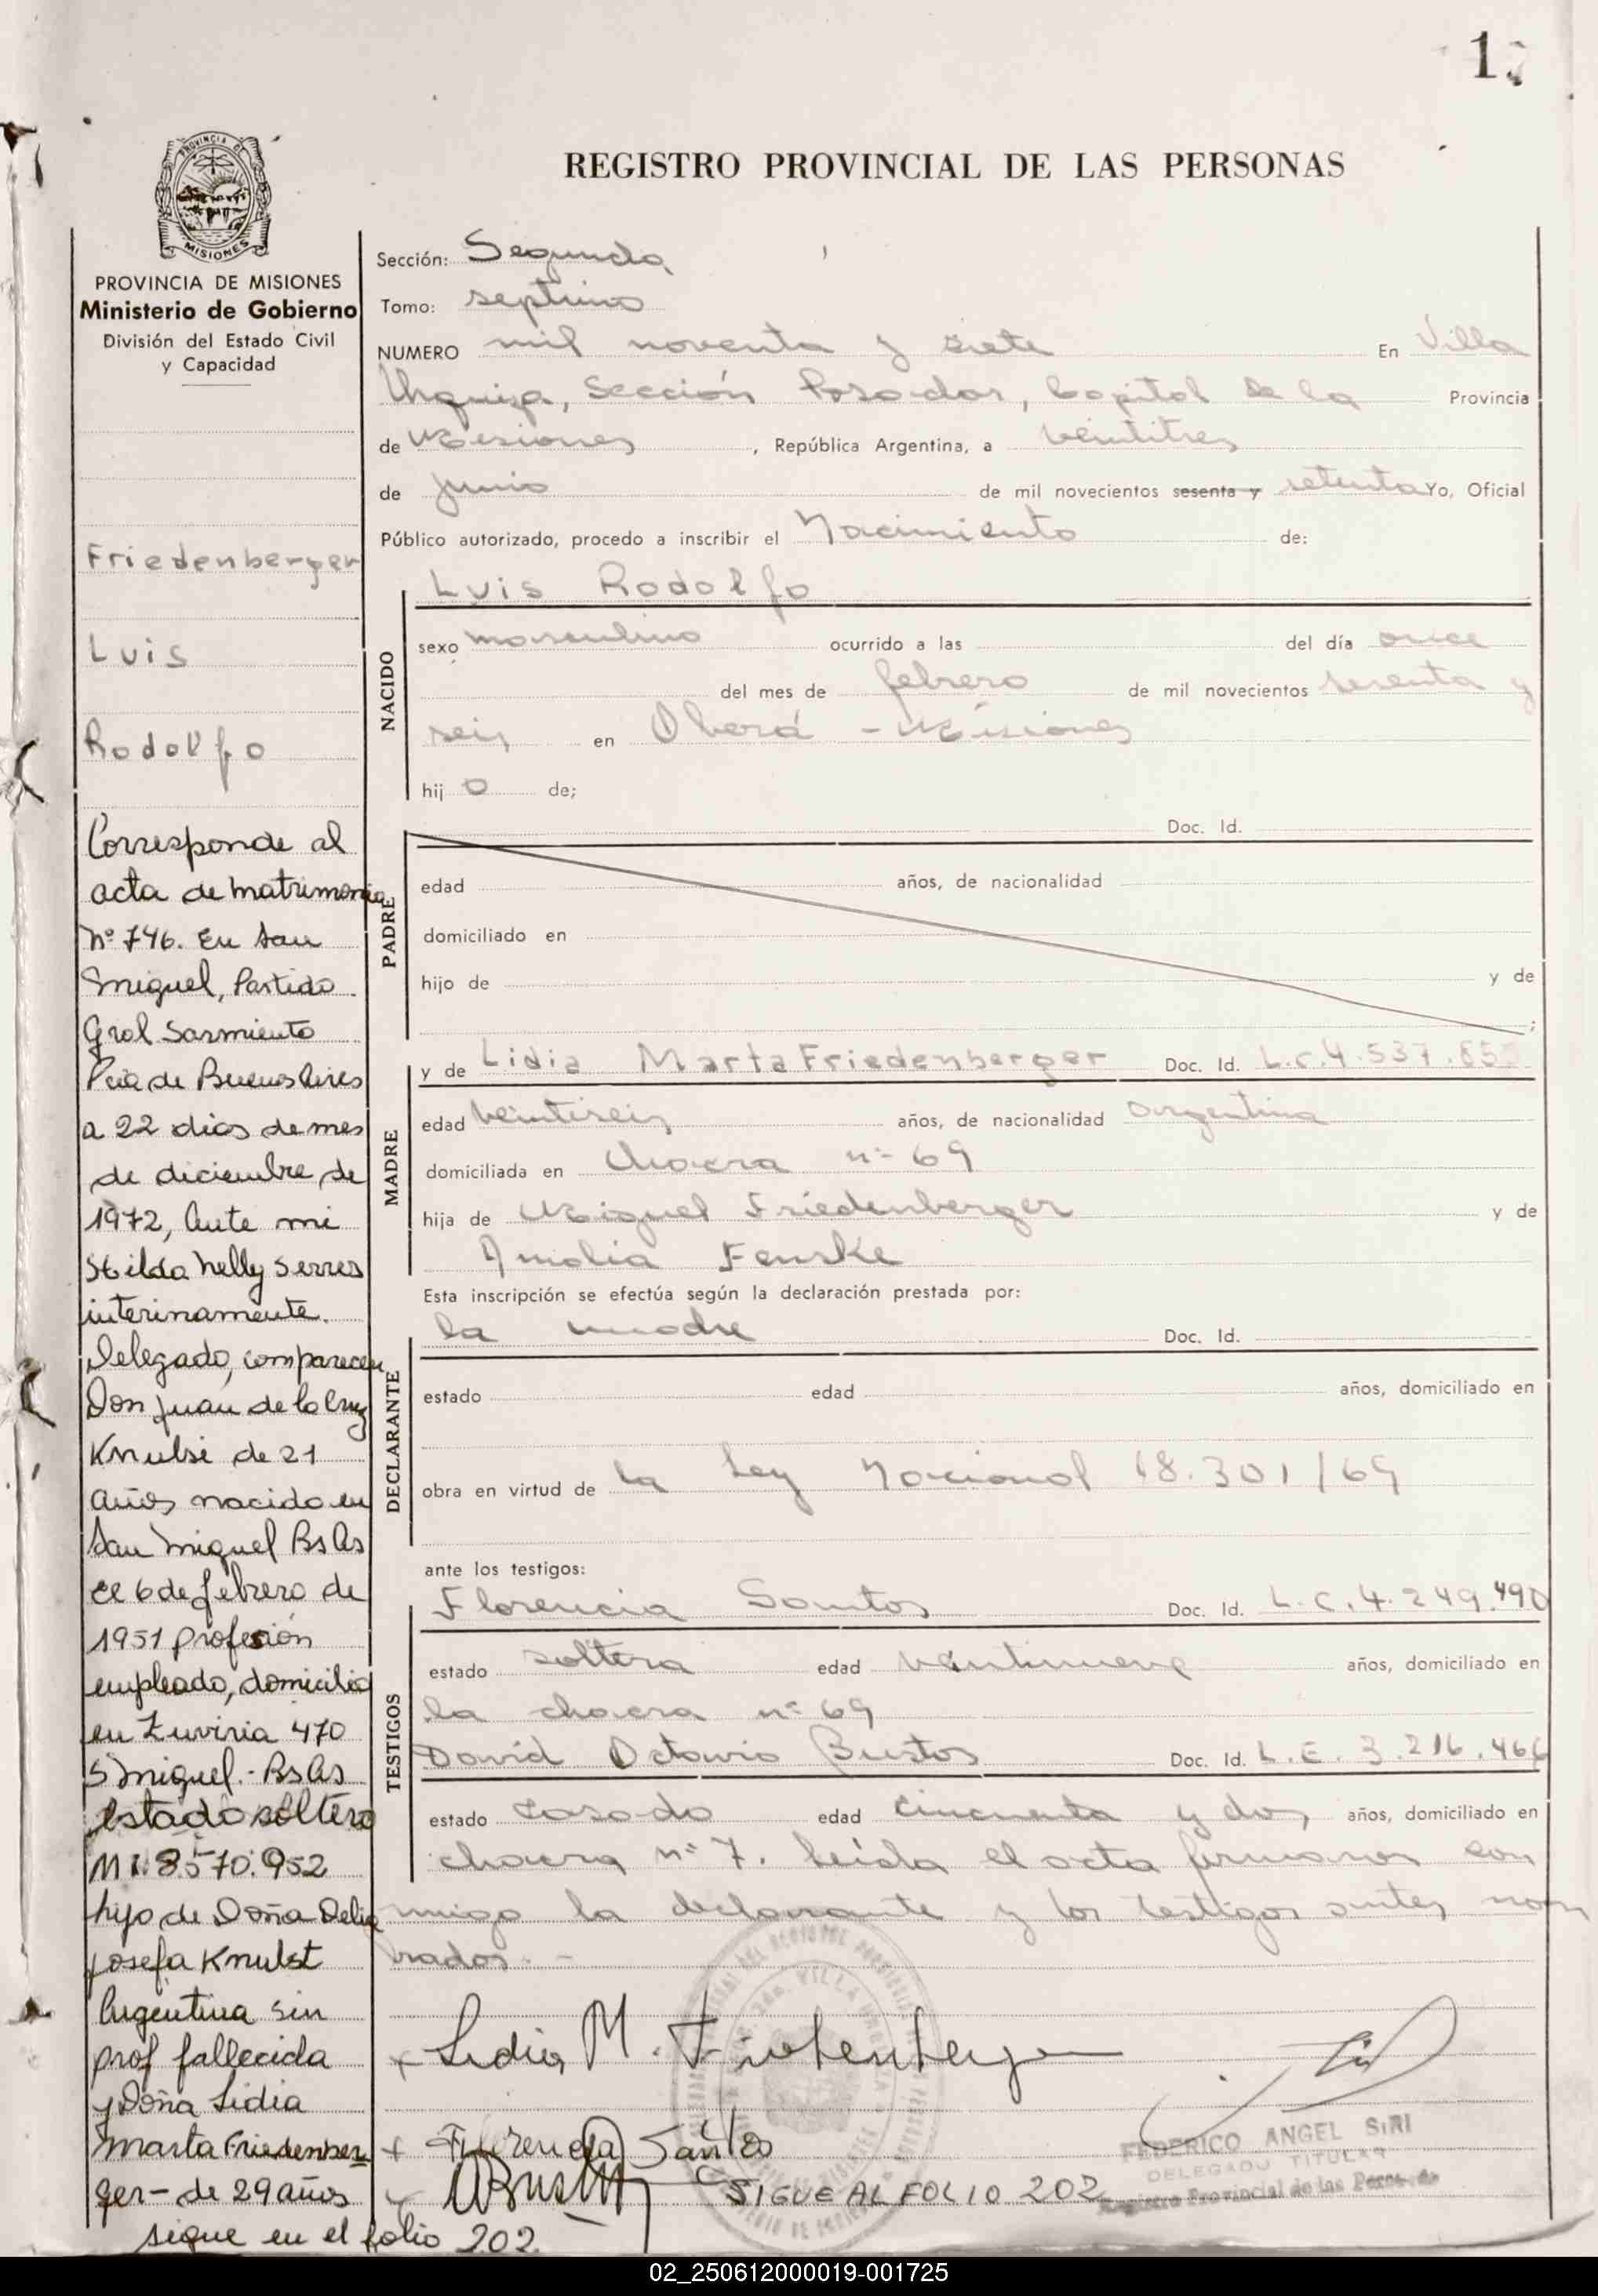 17
REGISTRO PROVINCIAL DE LAS PERSONAS
PROVINCIA DE
MISIONES
PROVINCIA DE MISIONES
Ministerio de Gobierno
División del Estado Civil
y Capacidad
Friedenberger
Luis
Rodolfo
Corresponde al
acta de matrimonio
Nº 746. En San
Miguel, Partido
Gral Sarmiento
Pcia de Buenos Aires
a 22 dias de mes
de diciembre de
1972, Ante mi
Hilda Nelly Serres
interinamente.
Delegado, comparecen
Don Juan de la Cruz
Knulst de 21
años nacido en
San Miguel Bs As
el 6 de febrero de
1951 profesión
empleado, domicilio
en Zuviria 470
S Miguel.- Bs As
estado soltero
M I. 8.570.952
hijo de Doña Delia
Josefa Knulst
Argentina sin
prof fallecida
y Doña Lidia
Marta Friedenber
ger- de 29 años
sigue en el folio 202
Sección: Segunda
Tomo: septimo
NUMERO mil noventa y siete En Villa
Urquiza, Sección Posadas, Capital de la Provincia
de Misiones, República Argentina, a veintitres
de junio de mil novecientos sesenta y setenta Yo, Oficial
Público autorizado, procedo a inscribir el Nacimiento de:
NACIDO
Luis Rodolfo
sexo masculino ocurrido a las del día once
del mes de febrero de mil novecientos sesenta y
seis en Oberá - Misiones
hij o de;
PADRE
Doc. Id.
edad años, de nacionalidad
domiciliado en
hijo de y de
;
MADRE
y de Lidia Marta Friedenberger Doc. Id. L.C. 4.537.653
edad veintiseis años, de nacionalidad argentina
domiciliada en Chacra nº 69
hija de Miguel Friedenberger y de
Amalia Fenske
Esta inscripción se efectúa según la declaración prestada por:
DECLARANTE
la madre Doc. Id.
estado edad años, domiciliado en
obra en virtud de la Ley Nacional 18.301/69
ante los testigos:
TESTIGOS
Florencia Santos Doc. Id. L.C. 4.249.490
estado soltera edad veintinueve años, domiciliado en
la chacra nº 69
David Octavio Bustos Doc. Id. L.E. 3.216.466
estado casado edad cincuenta y dos años, domiciliado en
chacra nº 7. Leída el acta firmaron con
migo la declarante y los testigos antes nom
brados.-
x Lidia M. Friedenberger
x Florencia Santos
DBustos
SIGUE AL FOLIO 202
FEDERICO ANGEL SIRI
DELEGADO TITULAR
Registro Provincial de las Personas
02_250612000019-001725